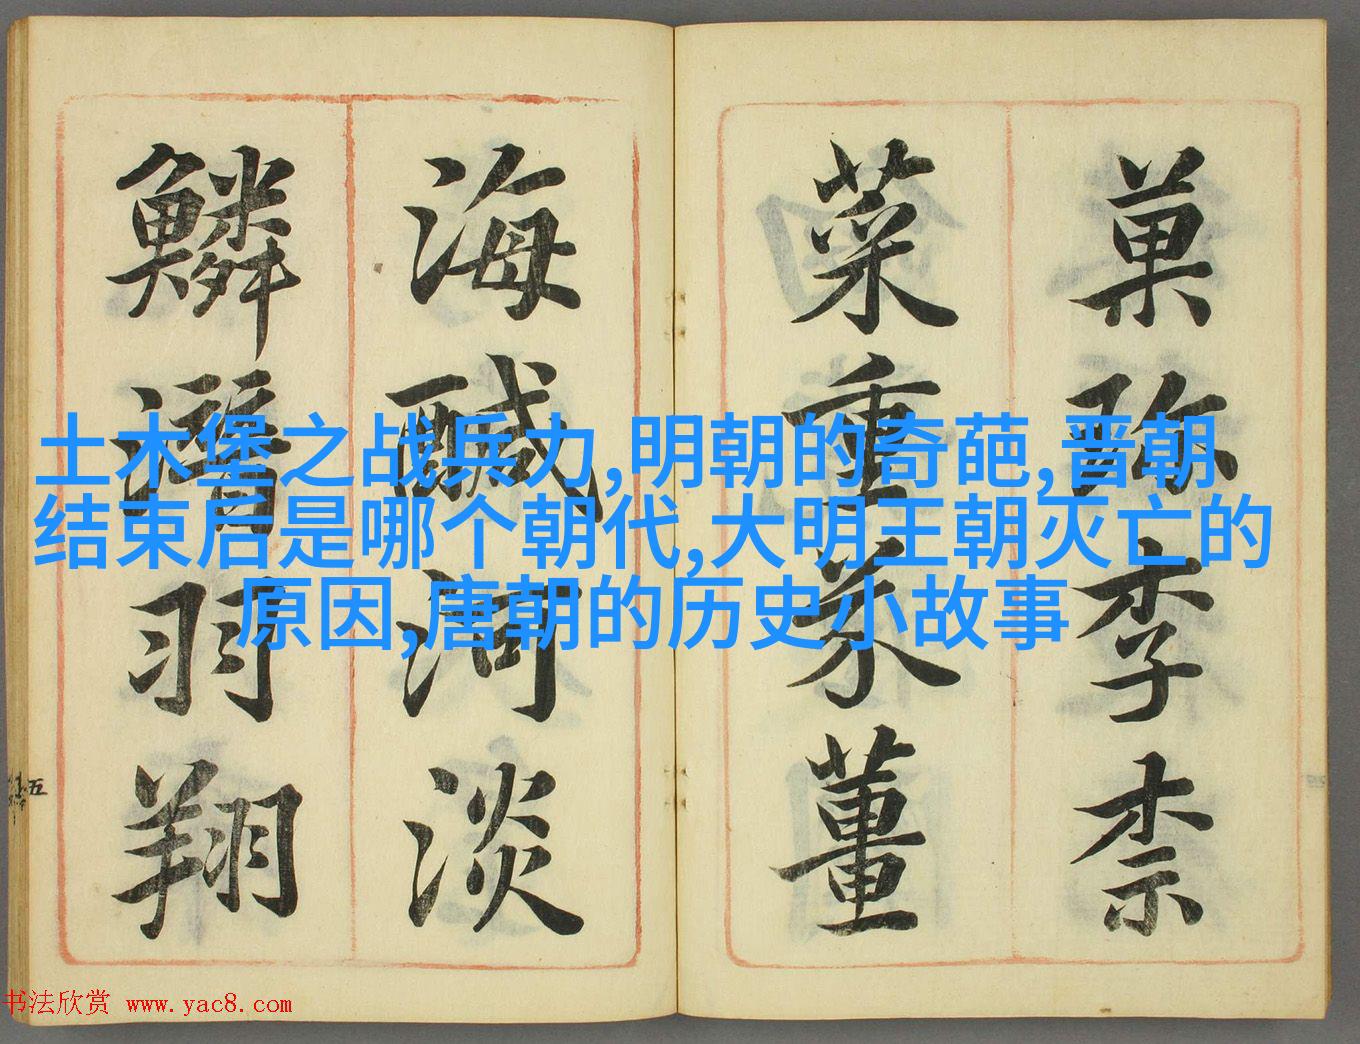 菓珍李柰
菜重芥薑
海醎河淡
鱗潛羽翔
土木堡之战兵力,明朝的奇葩,晋朝
结束后是哪个朝代,大明王朝灭亡的
原因,唐朝的历史小故事
五
书法欣赏 www.yac8.com